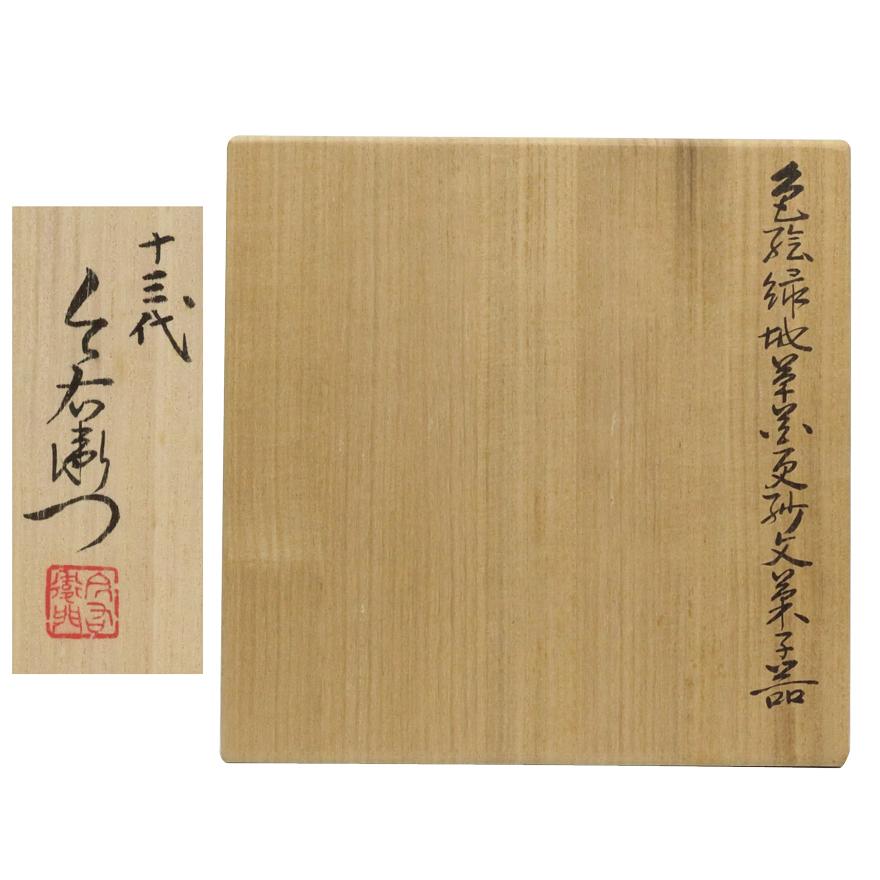 色絵緑地草花更紗文菓子器
十三代
今右衛门
今右衛門